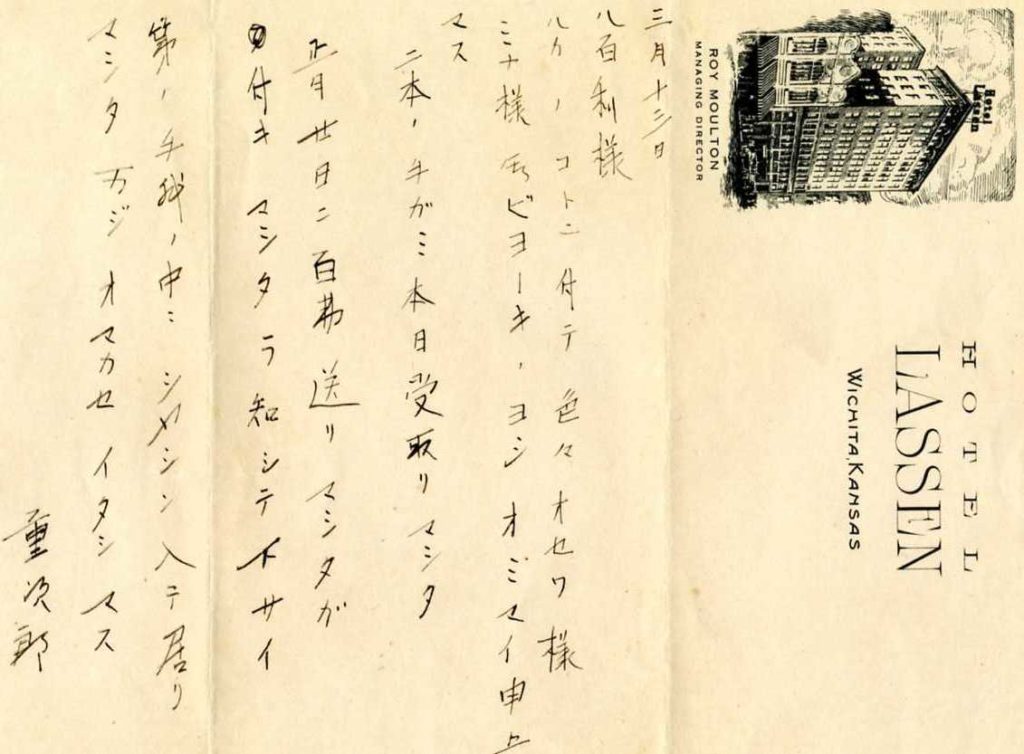 Hotel Lassen
ROY MOULTON
MANAGING DIRECTOR
HOTEL
LASSEN
WICHITA, KANSAS
三月十三日
八百利様
ハカノコトニ付テ色々オセワ様
ミナ様 ビヨーキノヨシオミマイ申上
マス
二本ノ手ガミ本日受取リマシタ
正月廿日ニ百弗送リマシタガ
付キマシタラ知シテ下サイ
第ノ手紙ノ中ニシヤシン入テ居リ
マシタ万ジオマカセイタシマス
重次郎